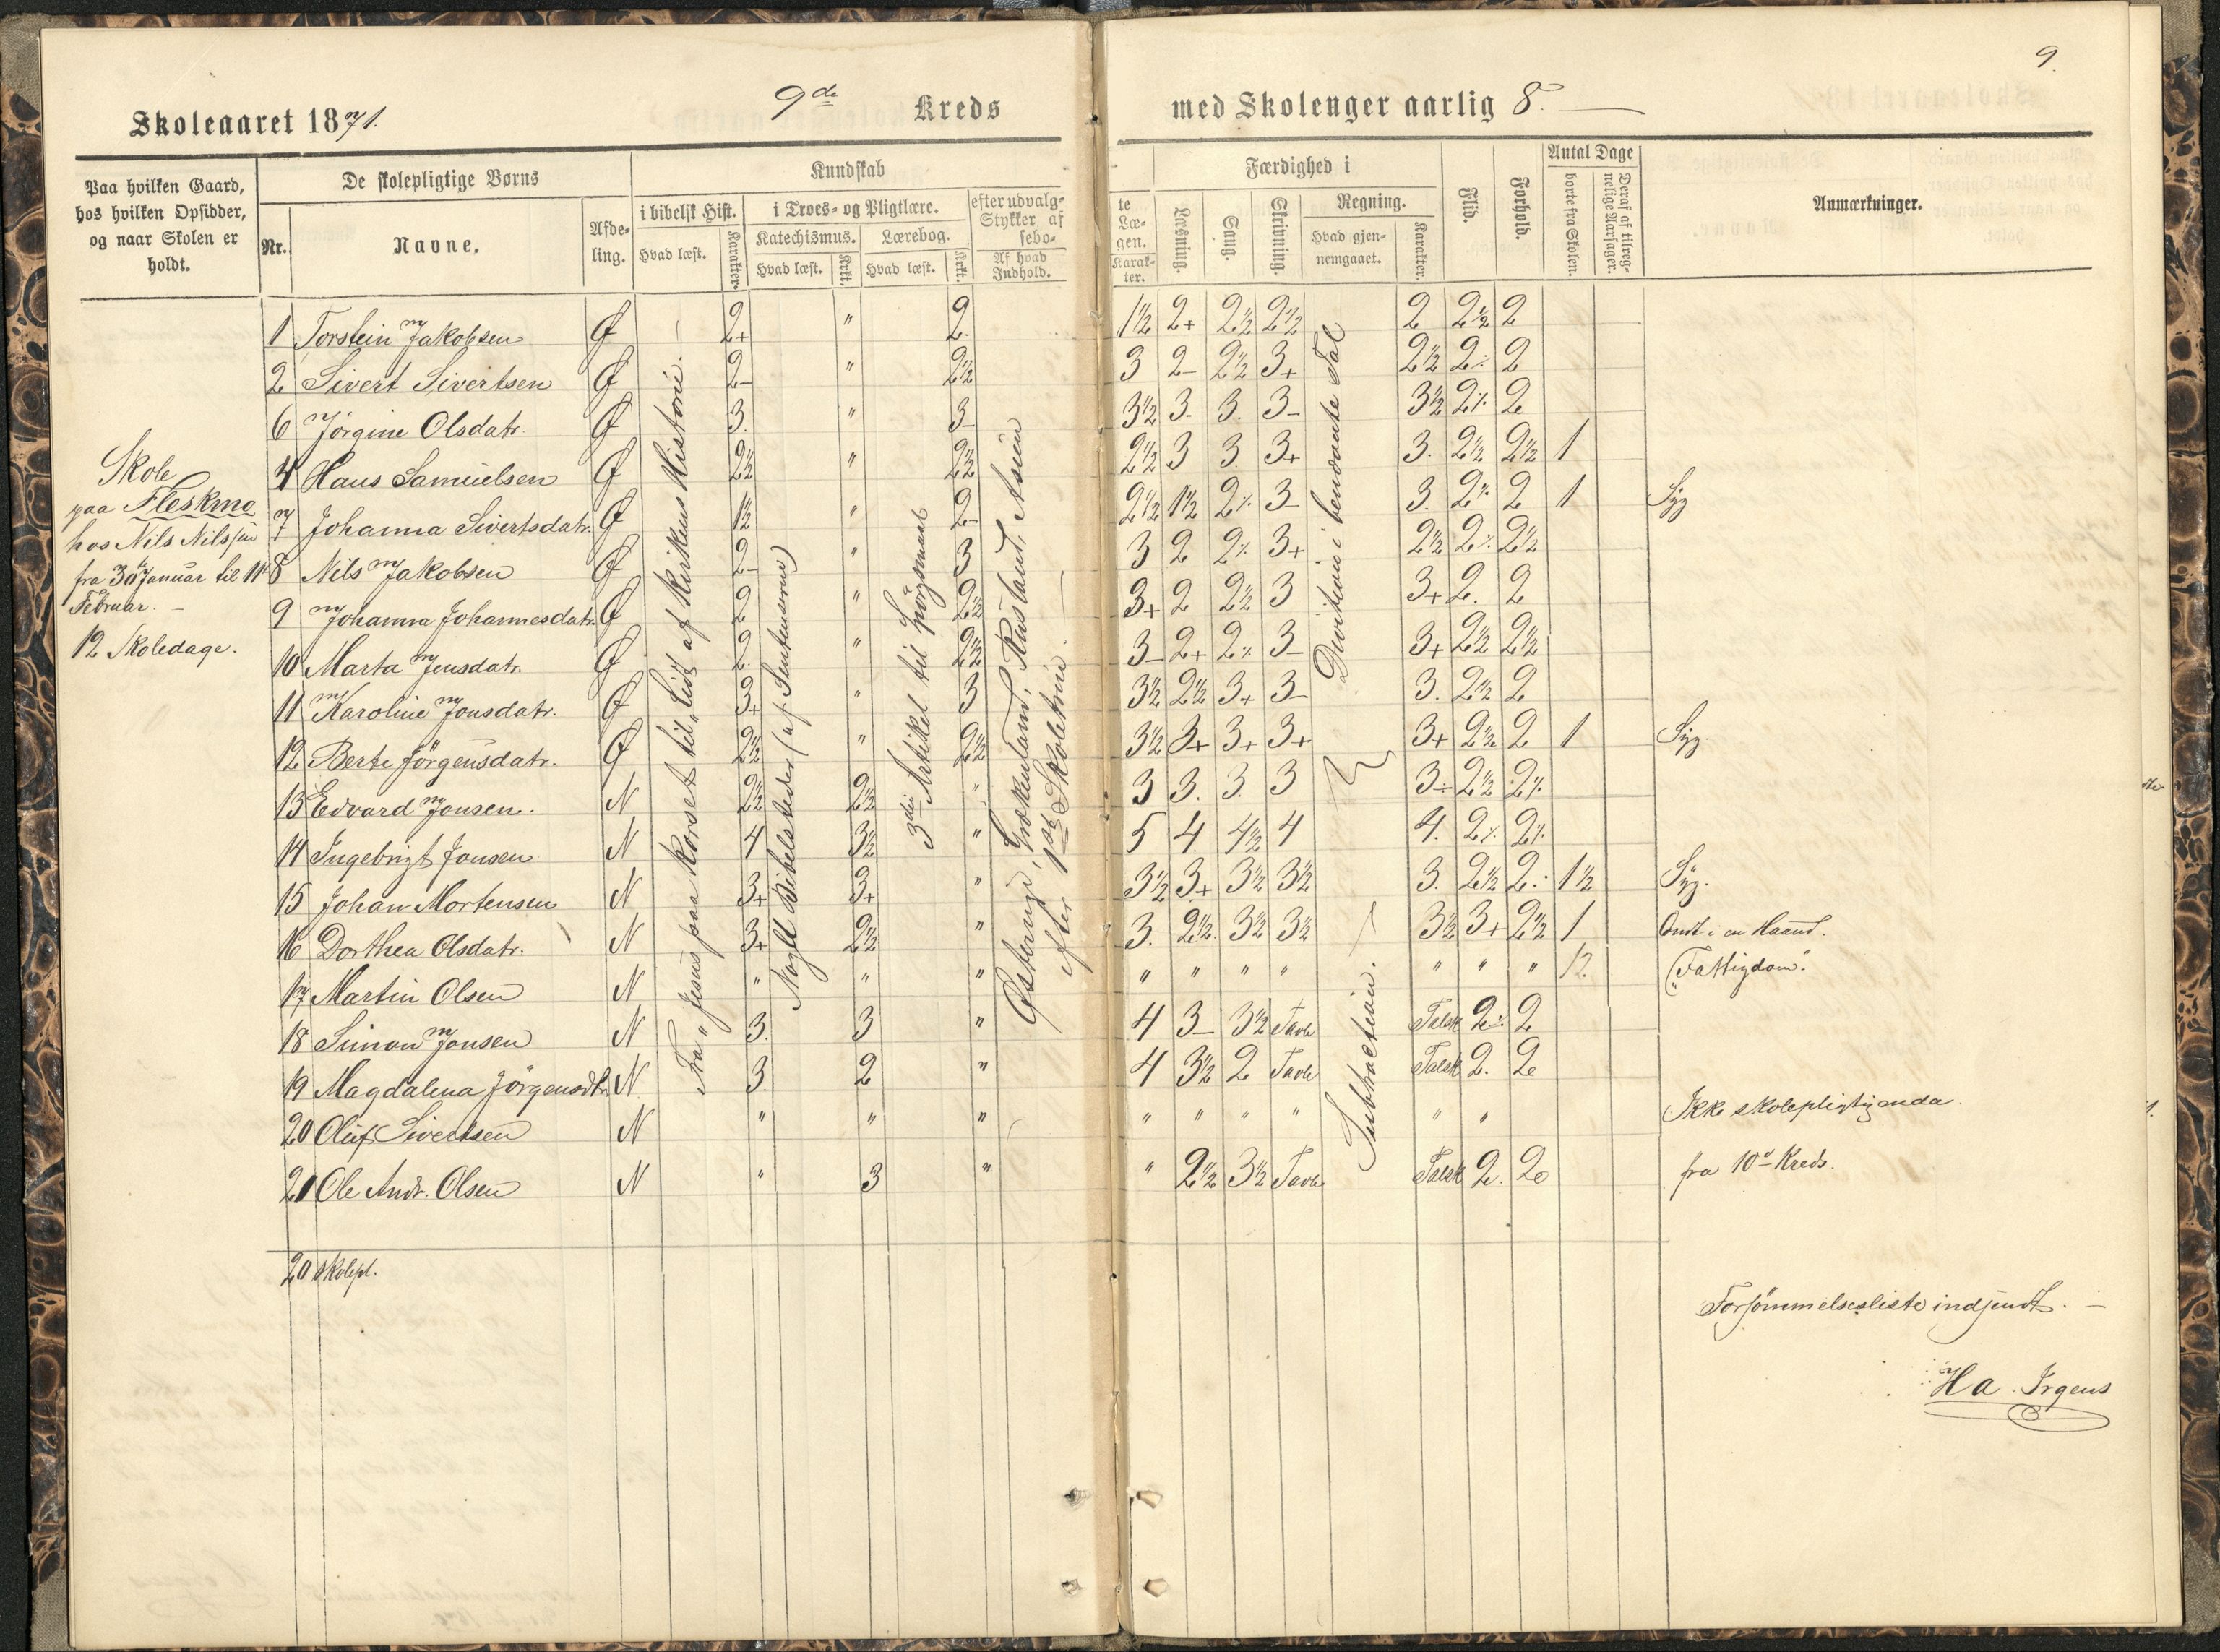 9
Skoleaaret 1871.
9de Kreds
med Skolenger aarlig 8.
Paa hvilken Gaard, hos hvilken Opsidder, og naar Skolen er holdt.
De skolepligtige Børns
Nr.
Navne.
Afdeling.
Kundskab
i bibelsk Hist.
Hvad læst.
Karakter.
i Troes- og Pligtlære.
Katechismus.
Hvad læst.
Krkt.
Lærebog.
Hvad læst.
Krkt.
efter udvalg-
Stykker af
sebo-
Af hvad Indhold.
te
Læ-
gen.
Karakter.
Færdighed i
Læsning.
Sang.
Skrivning.
Regning.
Hvad gjennemgaaet.
Karakter.
Flid.
Forhold.
Antal Dage
borte fra Skolen.
Deraf af tilregnelige Aarsager.
Anmærkninger.
Skole
paa Fleskmo
hos Nils Nilssen
fra 30te Januar til 11te
Februar. –
12 Skoledage.
1 Torstein Jakobsen Ø 2+ " 2. 1½ 2+ 2½ 2½ 2 2½ 2
2 Sivert Sivertsen Ø 2- " 2½ 3 2- 2½ 3+ 2½ 2⁒ 2
6 Jörgine Olsdatr. Ø 3. " 3- 3½ 3- 3. 3- 3½ 2⁒ 2
4 Hans Samuelsen Ø 2½ " 2½ 2½ 3 3 3+ 3. 2½ 2½ 1
7 Johanna Sivertsdatr. Ø 1½ " 2- 2½ 1½ 2⁒ 3- 3. 2⁒ 2 1 Syg
8 Nils Jakobsen Ø 2- " 3 3 2 2⁒ 3+ 2½ 2⁒ 2½
9 Johanna Johannesdatr. Ø 2 " 2½ 3+ 2 2½ 3 3+ 2. 2
10 Marta Jensdatr. Ø 2. " 2½ 3- 2+ 2⁒ 3- 3+ 2½ 2½
11 Karoline Jonsdatr. Ø 3+ " 3 3½ 2½ 3+ 3- 3. 2½ 2
12 Berte Jörgensdatr. Ø 2½ " 2½ 3½ 3+ 3+ 3+ 3+ 2½ 2 1 Syg.
13 Edvard Jonsen. N 2½ 2½ " 3 3. 3. 3 3÷ 2½ 2⁒
14 Ingebrigt Jonsen N 4 3½ " 5 4. 4½ 4 4. 2⁒ 2⁒
15 Johan Mortensen N 3+ 3+ " 3½ 3+ 3½ 3½ 3. 2½ 2⁒ 1½ Syg.
16 Dorthea Olsdatr. N 3+ 2½ " 3. 2½. 3½ 3½ 3½ 3+ 2½ 1 Ondt i en Haand.
17 Martin Olsen N " " " " " " " " " " 12 "Fattigdom."
18 Simon Jonsen N 3. 3 " 4 3- 3½ Tavle Talsk 2⁒ 2
19 Magdalena Jörgensdtr. N 3. 2 " 4 3½ 2 Tavle Talsk 2. 2
20 Oluf Sivertsen N " " " " " " " " " Ikke skolepligtig enda.
21 Ole Andr. Olsen N " 3 " " 2½ 3½ Tavle Talsk 2. 2 fra 10de Kreds.
Fra „Jesus paa Korset til „Lidz af Kirkens Historie.
Nogle Bibelsteder (af Sentenserne)
3die Artikel til Spörgsmaal
Østerrige, Grækenland, Rusland, Asien
efter 1ste Skoletrin. –
Division i benævnte Tal
Subtraction.
20 skolepl.
Forsömmelsesliste indsendt. –
Ha. Irgens